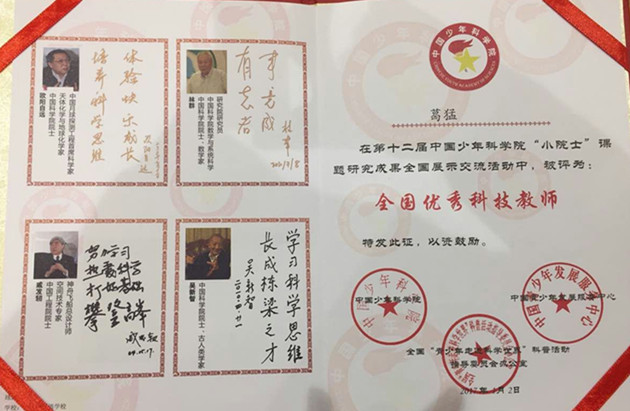 体验快乐成长
培养科学思维
欧阳自远
中国科学院院士
天体化学与地球化学家
中国月球探测工程首席科学家
有志者
事竟成
林群
中国科学院院士、数学家
中国科学院数学与系统科学
研究院研究员
努力学习
攀登高峰
戚发轫
中国工程院院士
空间技术专家
神舟飞船总设计师
学习科学思维
长成栋梁之才
吴新智
吴新智
中国科学院院士、古人类学家
中国少年科学院
葛猛
在第十二届中国少年科学院“小院士”课
题研究成果全国展示交流活动中，被评为：
全国优秀科技教师
特发此证，以资鼓励。
中国少年科学院
中国青少年发展服务中心
全国“青少年走进科学世界”科普活动
指导委员会办公室